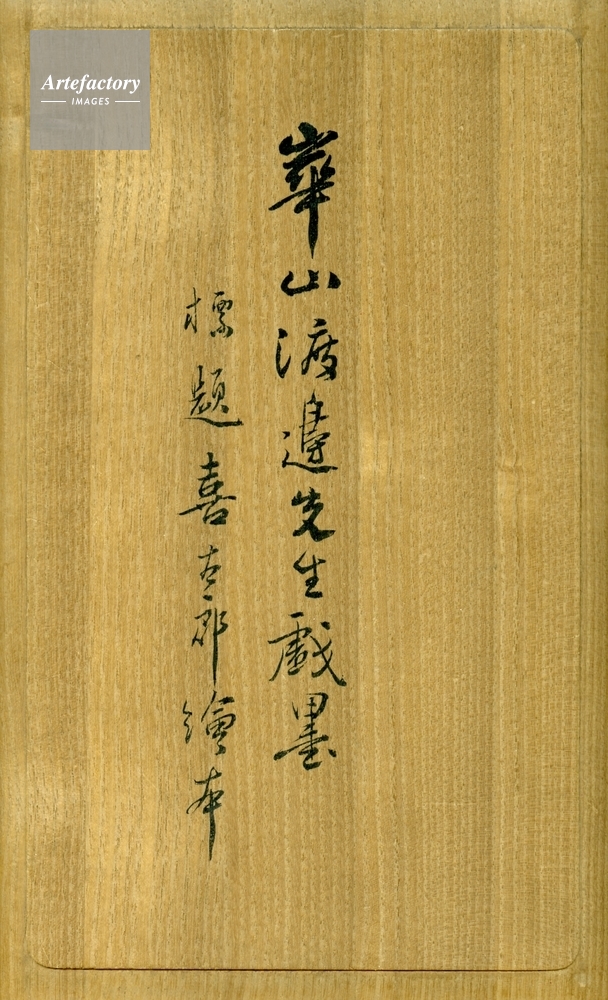 Artefactory
IMAGES
崋山渡邉先生戯墨
標題喜太郎繪本